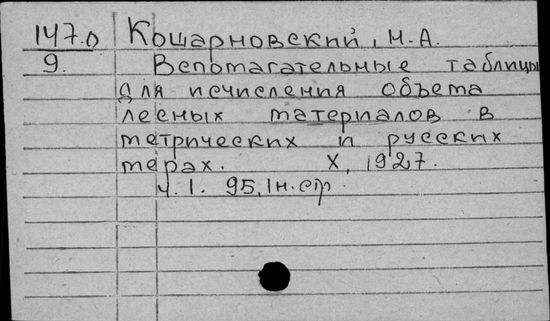 147.0 Кошарновский, Н.А.
9. Вспомагательные таблицы
для исчисления объема
лесных материалов в
метрических и русских
мерах. Х, 1927.
ч. 1. 95, 1 н. стр.